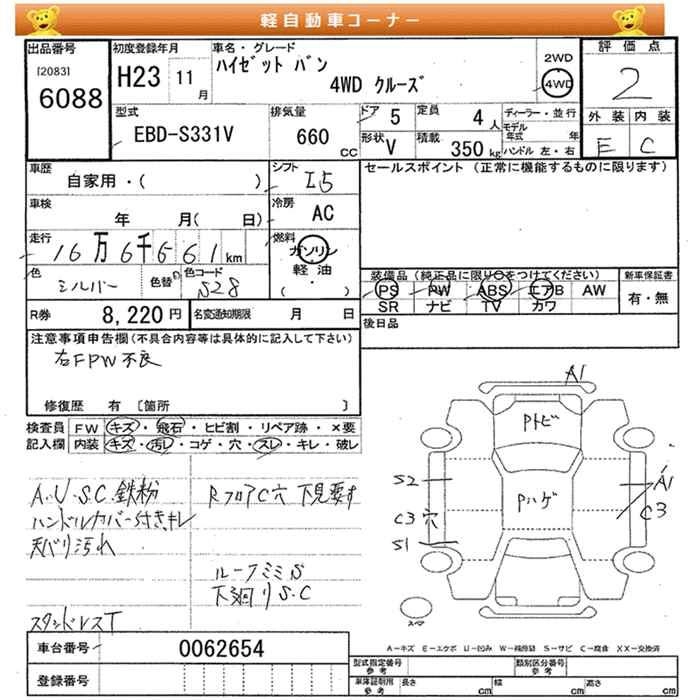 軽自動車コーナー
出品番号
[2083]
6088
初度登録年月
H23 11 月
車名・グレード
ハイゼット バン
4WD クルーズ
2WD
4WD
評価点
2
外装 内装
E C
型式
EBD-S331V
排気量
660 CC
ドア 5
定員 4 人
ディーラー・並行
モデル年式 年
形状 V
積載 350 kg
ハンドル 左・右
車歴
自家用・( )
シフト I5
セールスポイント (正常に機能するものに限ります)
車検
年 月( 日)
冷房 AC
走行
16万6千661km
燃料
ガソリン
軽油
( ・ )
色
シルバー
色替
色コード
S28
装備品 (純正品に限り○をつけてください)
PS PW ABS エアB AW
SR ナビ TV カワ
新車保証書
有・無
R券 8,220 円
名変通知期限 月 日
後日品
注意事項申告欄(不具合内容等は具体的に記入して下さい)
右FPW不良
修復歴 有 [箇所 ]
検査員 FW キズ・飛石・ヒビ割・リペア跡・×要
記入欄 内装 キズ・汚れ・コゲ・穴・スレ・キレ・破レ
A.U.S.C.鉄粉
ハンドルカバー付きキレ
天バリ汚れ
スタンドレスT
RフロアC穴 下見要す
ルーフミミS
下廻りS.C
A1
Pトビ
Pハゲ
S2
C3穴
S1
A1
C3
スペア
A-キズ E-エクボ U-凹み W-補修跡 S-サビ C-腐食 XX-交換済
車台番号 0062654
登録番号
型式指定番号 参考
類別区分番号 参考
車庫証明用 参考
長さ cm 幅 cm 高さ cm